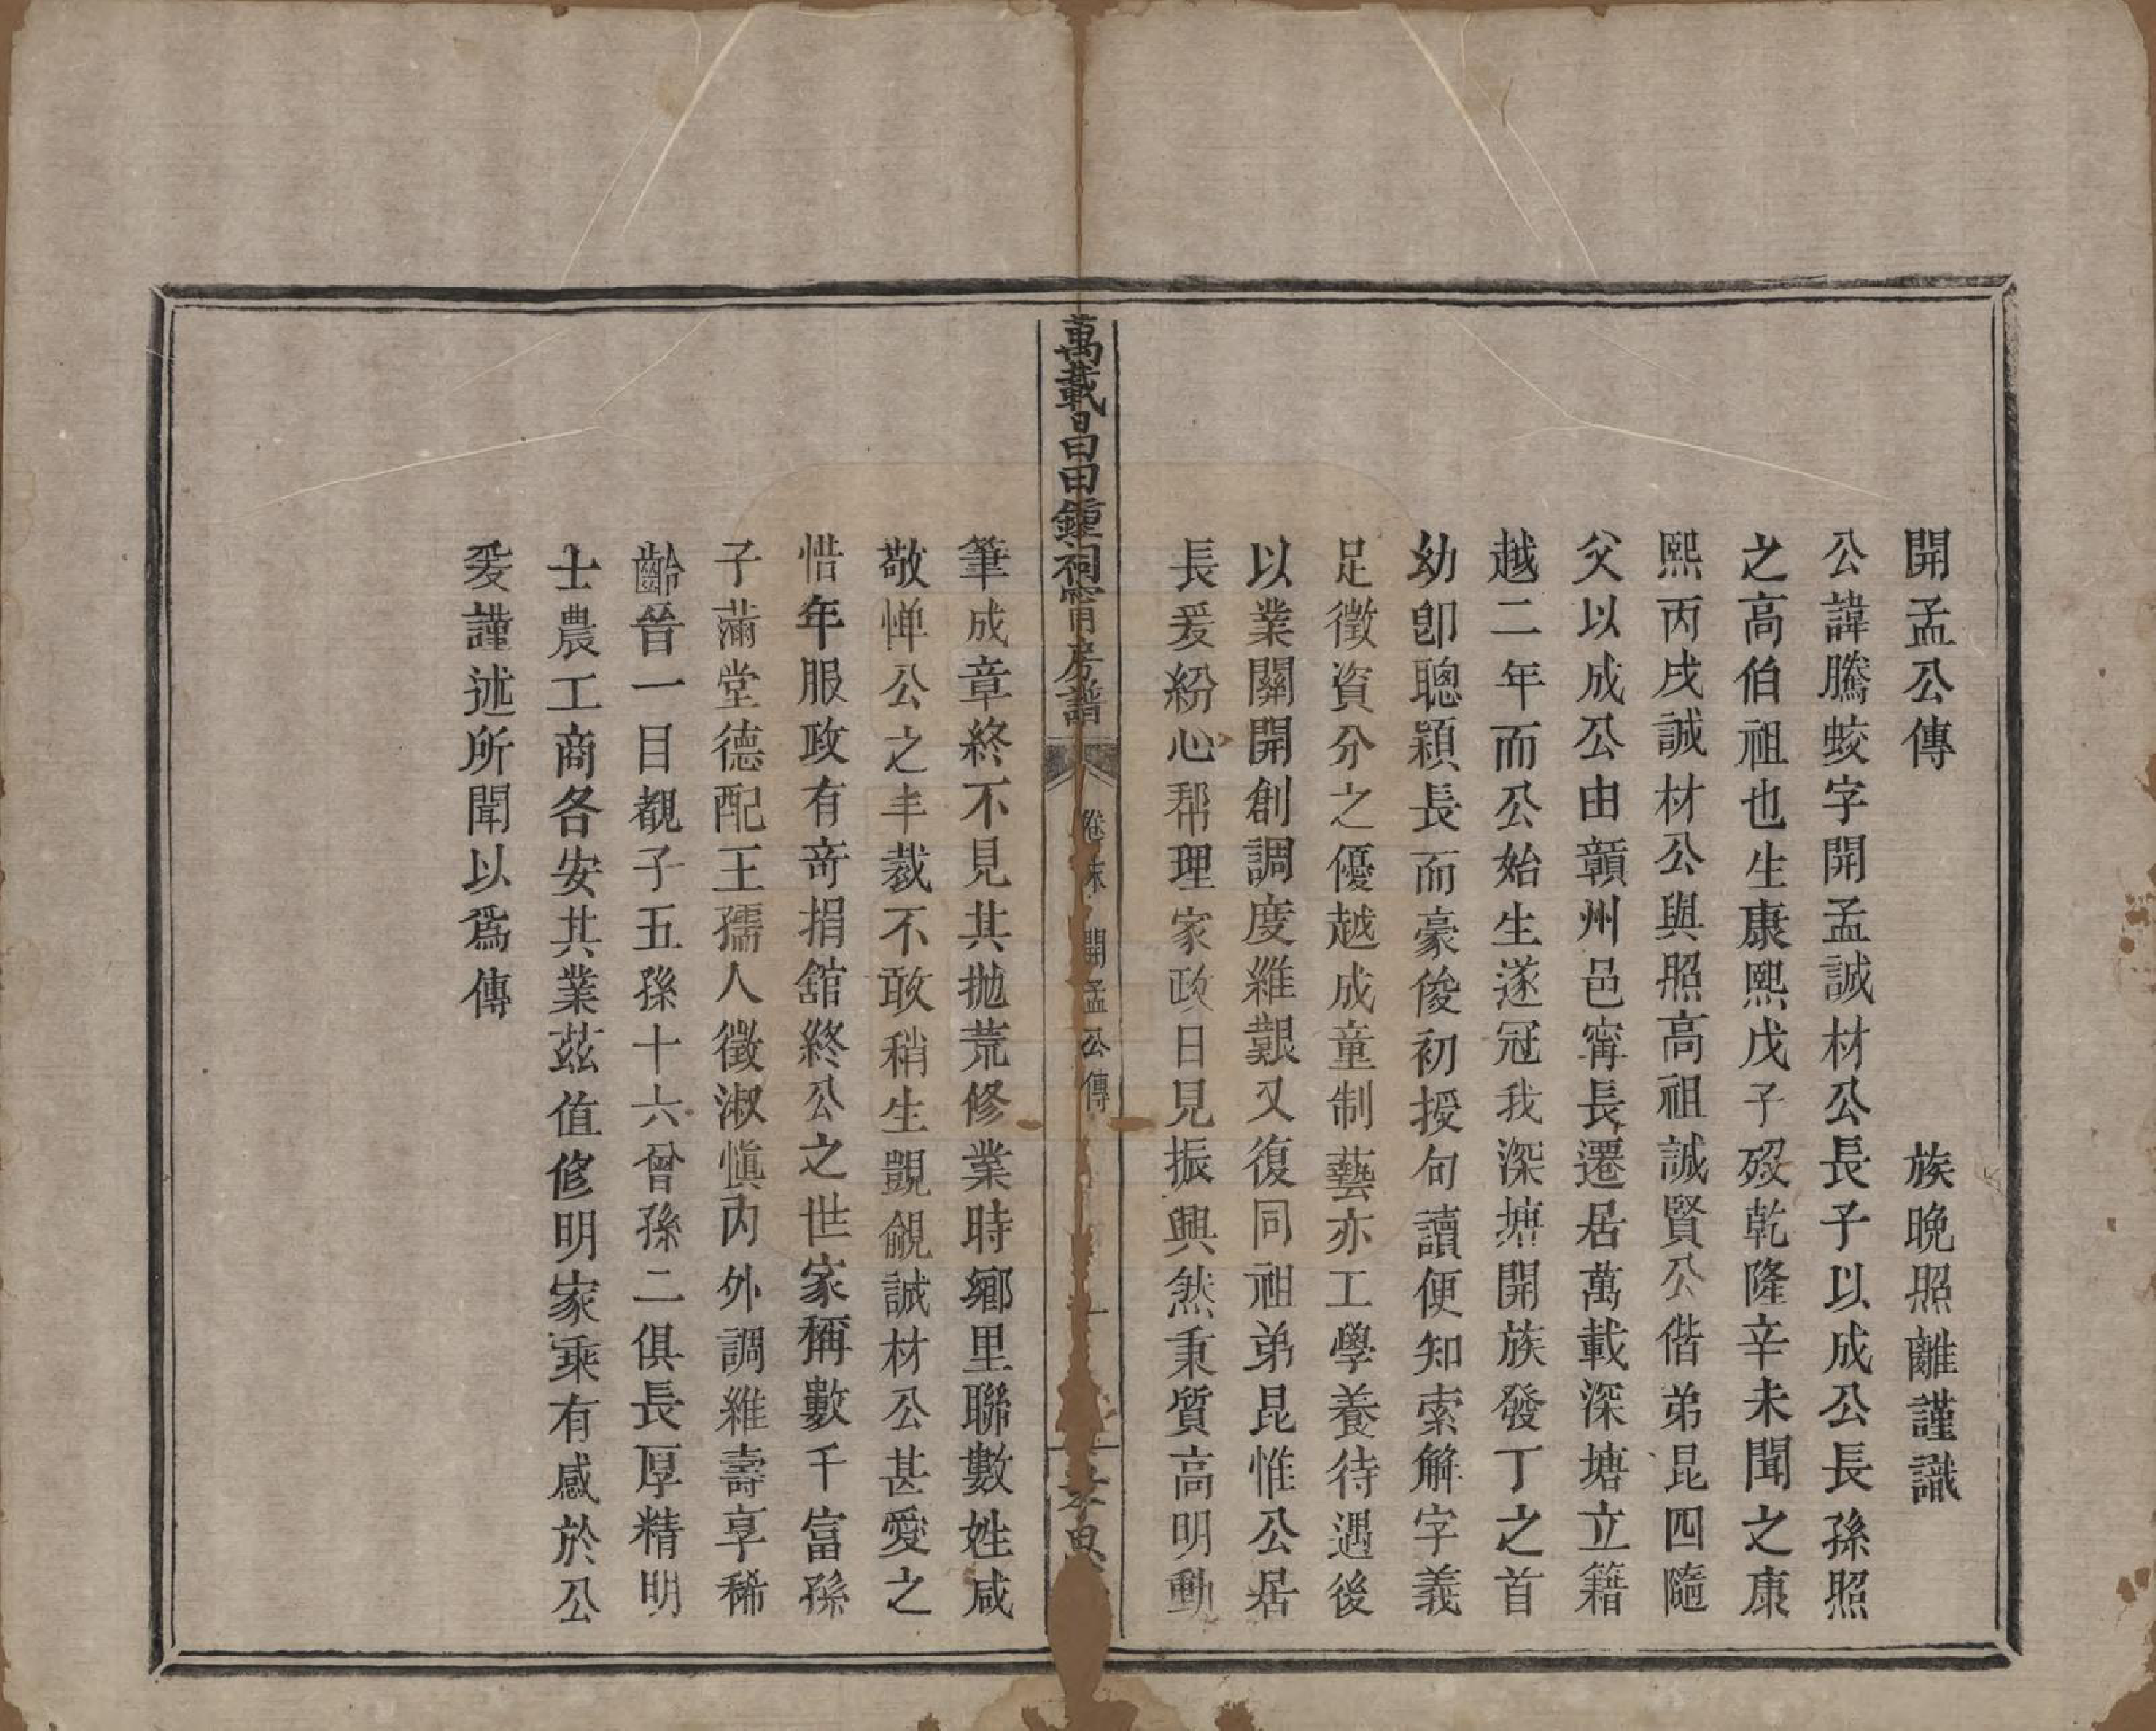 開孟公傳 族晚照離謹識
公諱騰蛟字開孟誠材公長子以成公長孫照
之高伯祖也生康熙戊子歿乾隆辛未聞之康
熙丙戌誠材公與照高祖誠賢公偕弟昆四隨
父以成公由贛州邑甯長遷居萬載深塘立籍
越二年而公始生遂冠我深塘開族發丁之首
幼卽聰穎長而豪俊初授句讀便知索解字義
足徵資分之優越成童制藝亦工學養待遇後
以業關開創調度維艱又復同祖弟昆惟公居
長爰紛心帮理家政日見振興然秉質高明動
萬載昌田鍾祠甯房譜 卷末 開孟公傳 孝思
筆成章終不見其拋荒修業時鄉里聯數姓咸
敬憚公之丰裁不敢稍生覬覦誠材公甚愛之
惜年服政有奇捐舘終公之世家稱數千富孫
子滿堂德配王孺人徵淑愼內外調維壽享稀
齡晉一目覩子五孫十六曾孫二俱長厚精明
士農工商各安其業茲值修明家乘有感於公
爰謹述所聞以爲傳